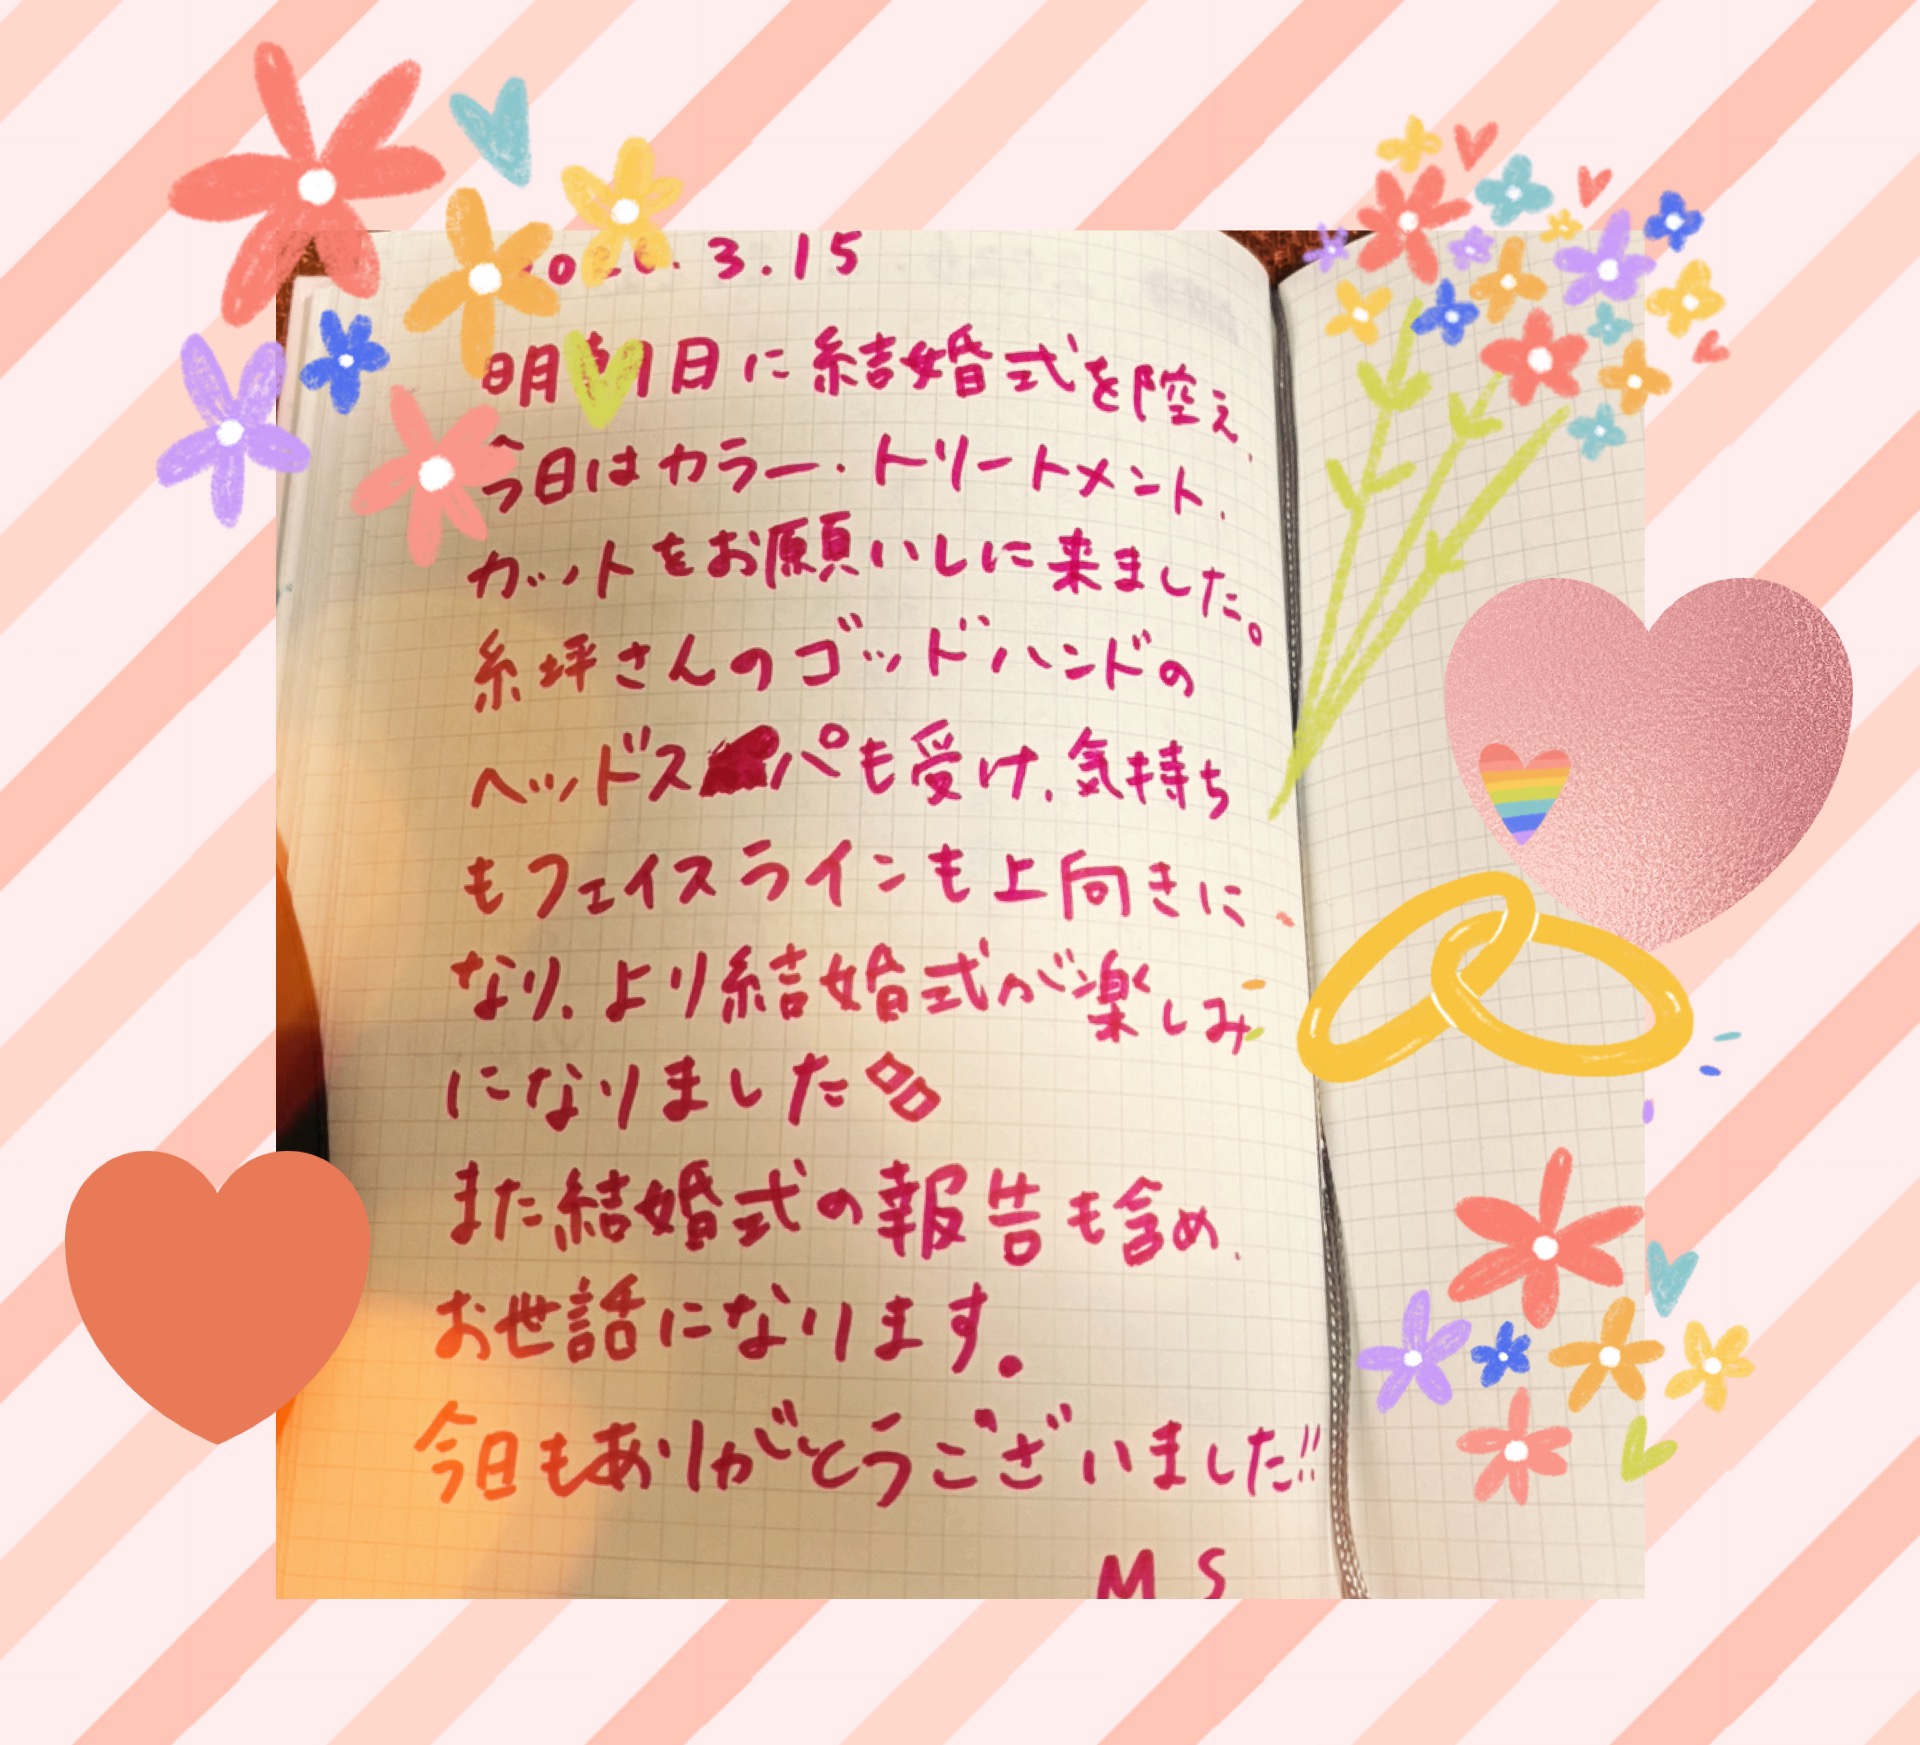 3.15
明日に結婚式を控え、
今日はカラー・トリートメント、
カットをお願いしに来ました。
糸坪さんのゴッドハンドの
ヘッドスパも受け、気持ち
もフェイスラインも上向きに
なり、より結婚式が楽しみ
になりました
また結婚式の報告も含め、
お世話になります。
今日もありがとうございました!!
M S